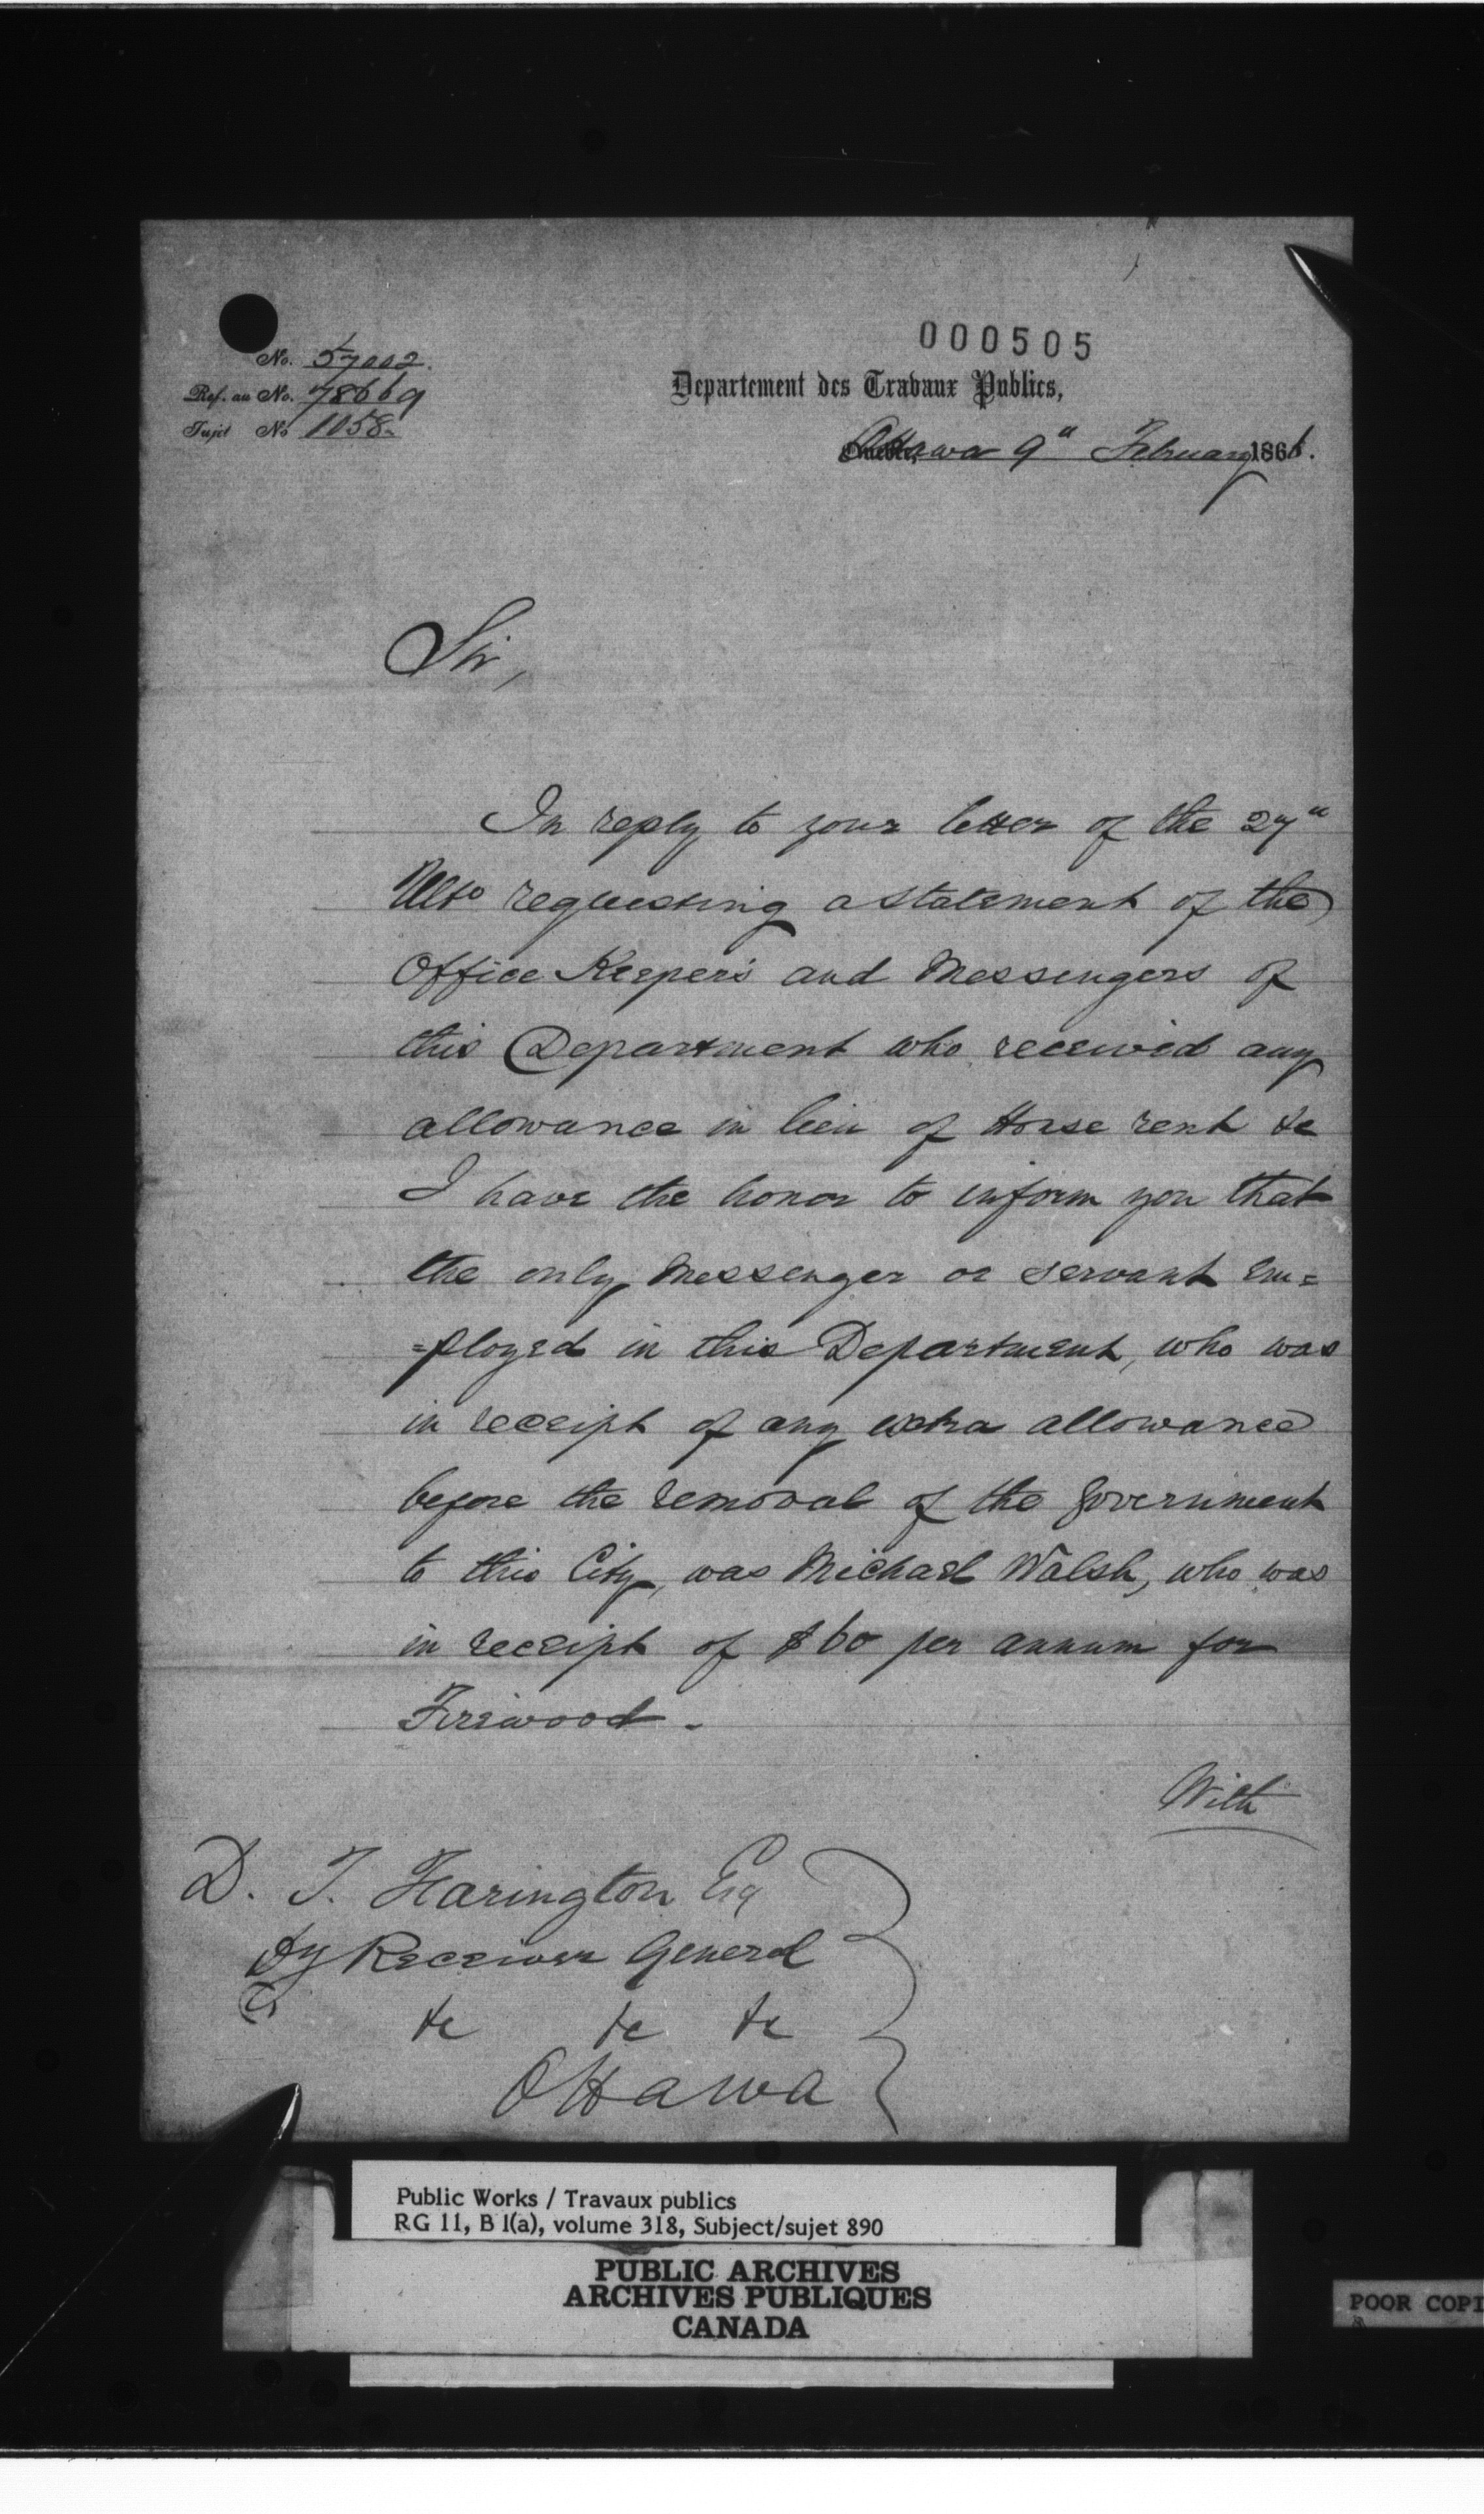 000505
No. 57002.
Ref. au No. 78669
Sujet No 1058
Departement des Travaux Publics,
Ottawa 9" February 1866.
Sir,
In reply to your letter of the 27"
Ulto requesting a statement of the
Office Keepers and Messengers of
this Department who received any
allowance in lieu of House rent &c
I have the honor to inform you that
the only Messenger or servant Em=
=ployed in this Department, who was
in receipt of any extra allowance
before the removal of the Government
to this City, was Michael Walsh, who was
in receipt of $60 per annum for
Firewood.
With
D. T. Harington Esq
Dy Receiver General
&c &c &c
Ottawa
Public Works / Travaux publics
RG 11, B 1(a), volume 318, Subject/sujet 890
PUBLIC ARCHIVES
ARCHIVES PUBLIQUES
CANADA
POOR COPI